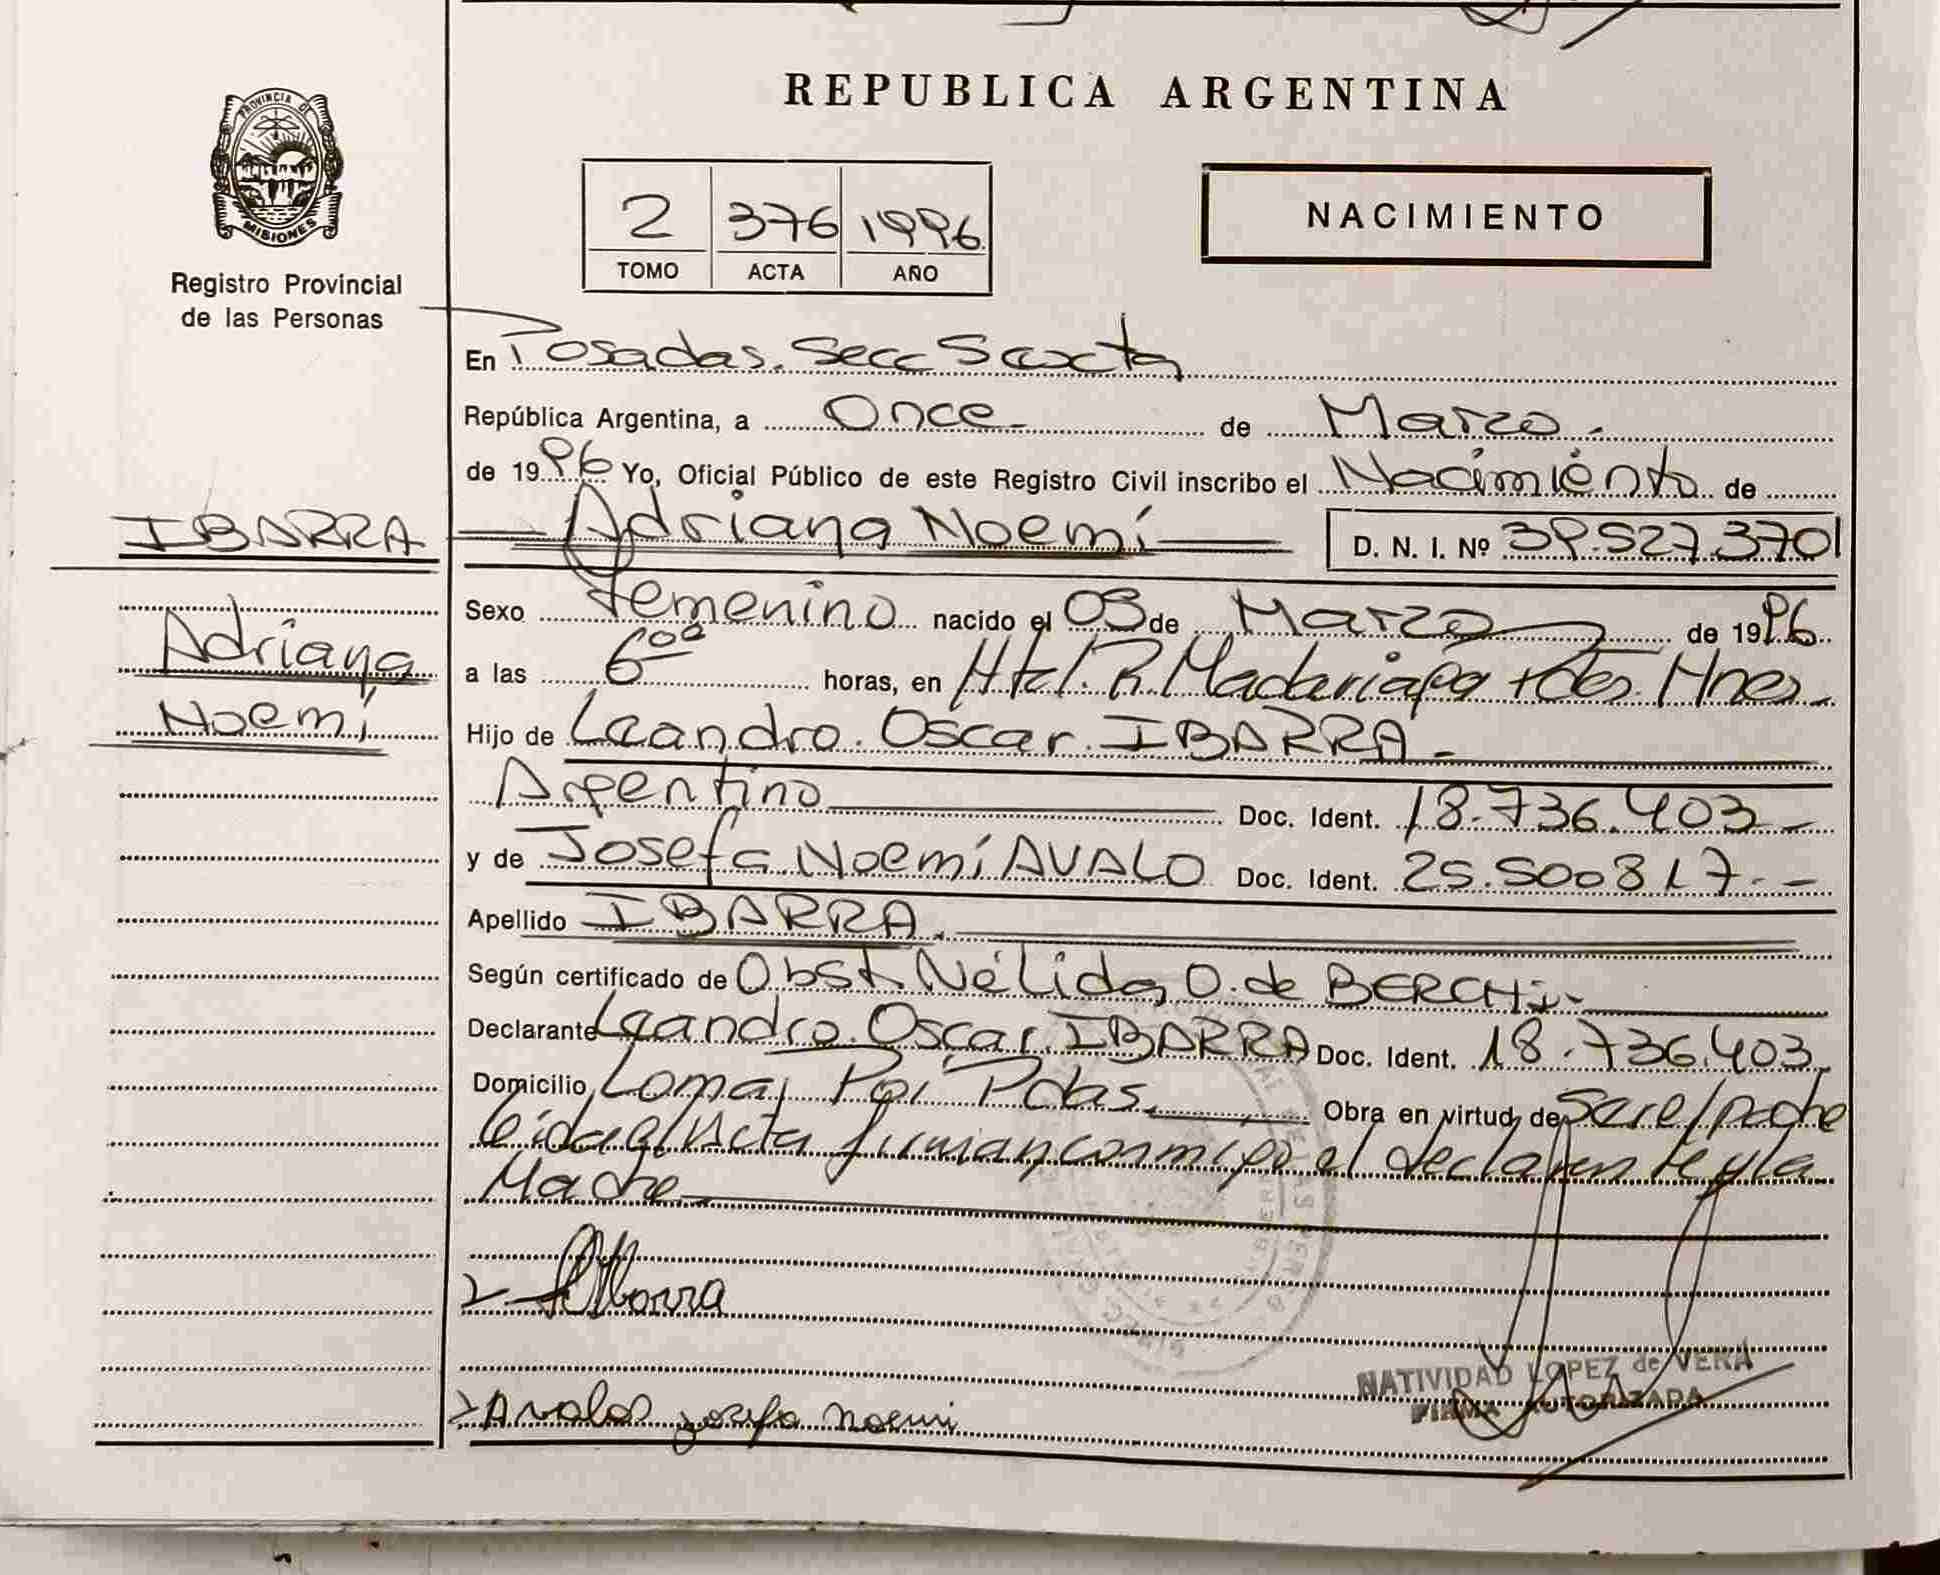 REPUBLICA ARGENTINA
PROVINCIA DE
MISIONES
Registro Provincial
de las Personas
2 376 1996
TOMO ACTA AÑO
NACIMIENTO
En Posadas. Secc Sexta
República Argentina, a Once de Marzo.
de 1996 Yo, Oficial Público de este Registro Civil inscribo el Nacimiento de
IBARRA
Adriana Noemí D. N. I. Nº 39.527.370
Adriana
Noemí
Sexo femenino nacido el 03 de Marzo de 1996
a las 6⁰⁰ horas, en R. Madariaga Hnes.
Hijo de Leandro. Oscar. IBARRA
Argentino Doc. Ident. 18.736.403
y de Josefa Noemí AVALO Doc. Ident. 25.500817
Apellido IBARRA.
Según certificado de Obst. Nélida O. de BERCHI
Declarante Leandro. Oscar. IBARRA Doc. Ident. 18.736.403
Domicilio Loma Poi Pdas. Obra en virtud de Ser el padre
leida el Acta firman conmigo el declarante y la
Madre
Ibarra
NATIVIDAD LOPEZ de VERA
FIRMA AUTORIZADA
Avalos Josefa Noemi